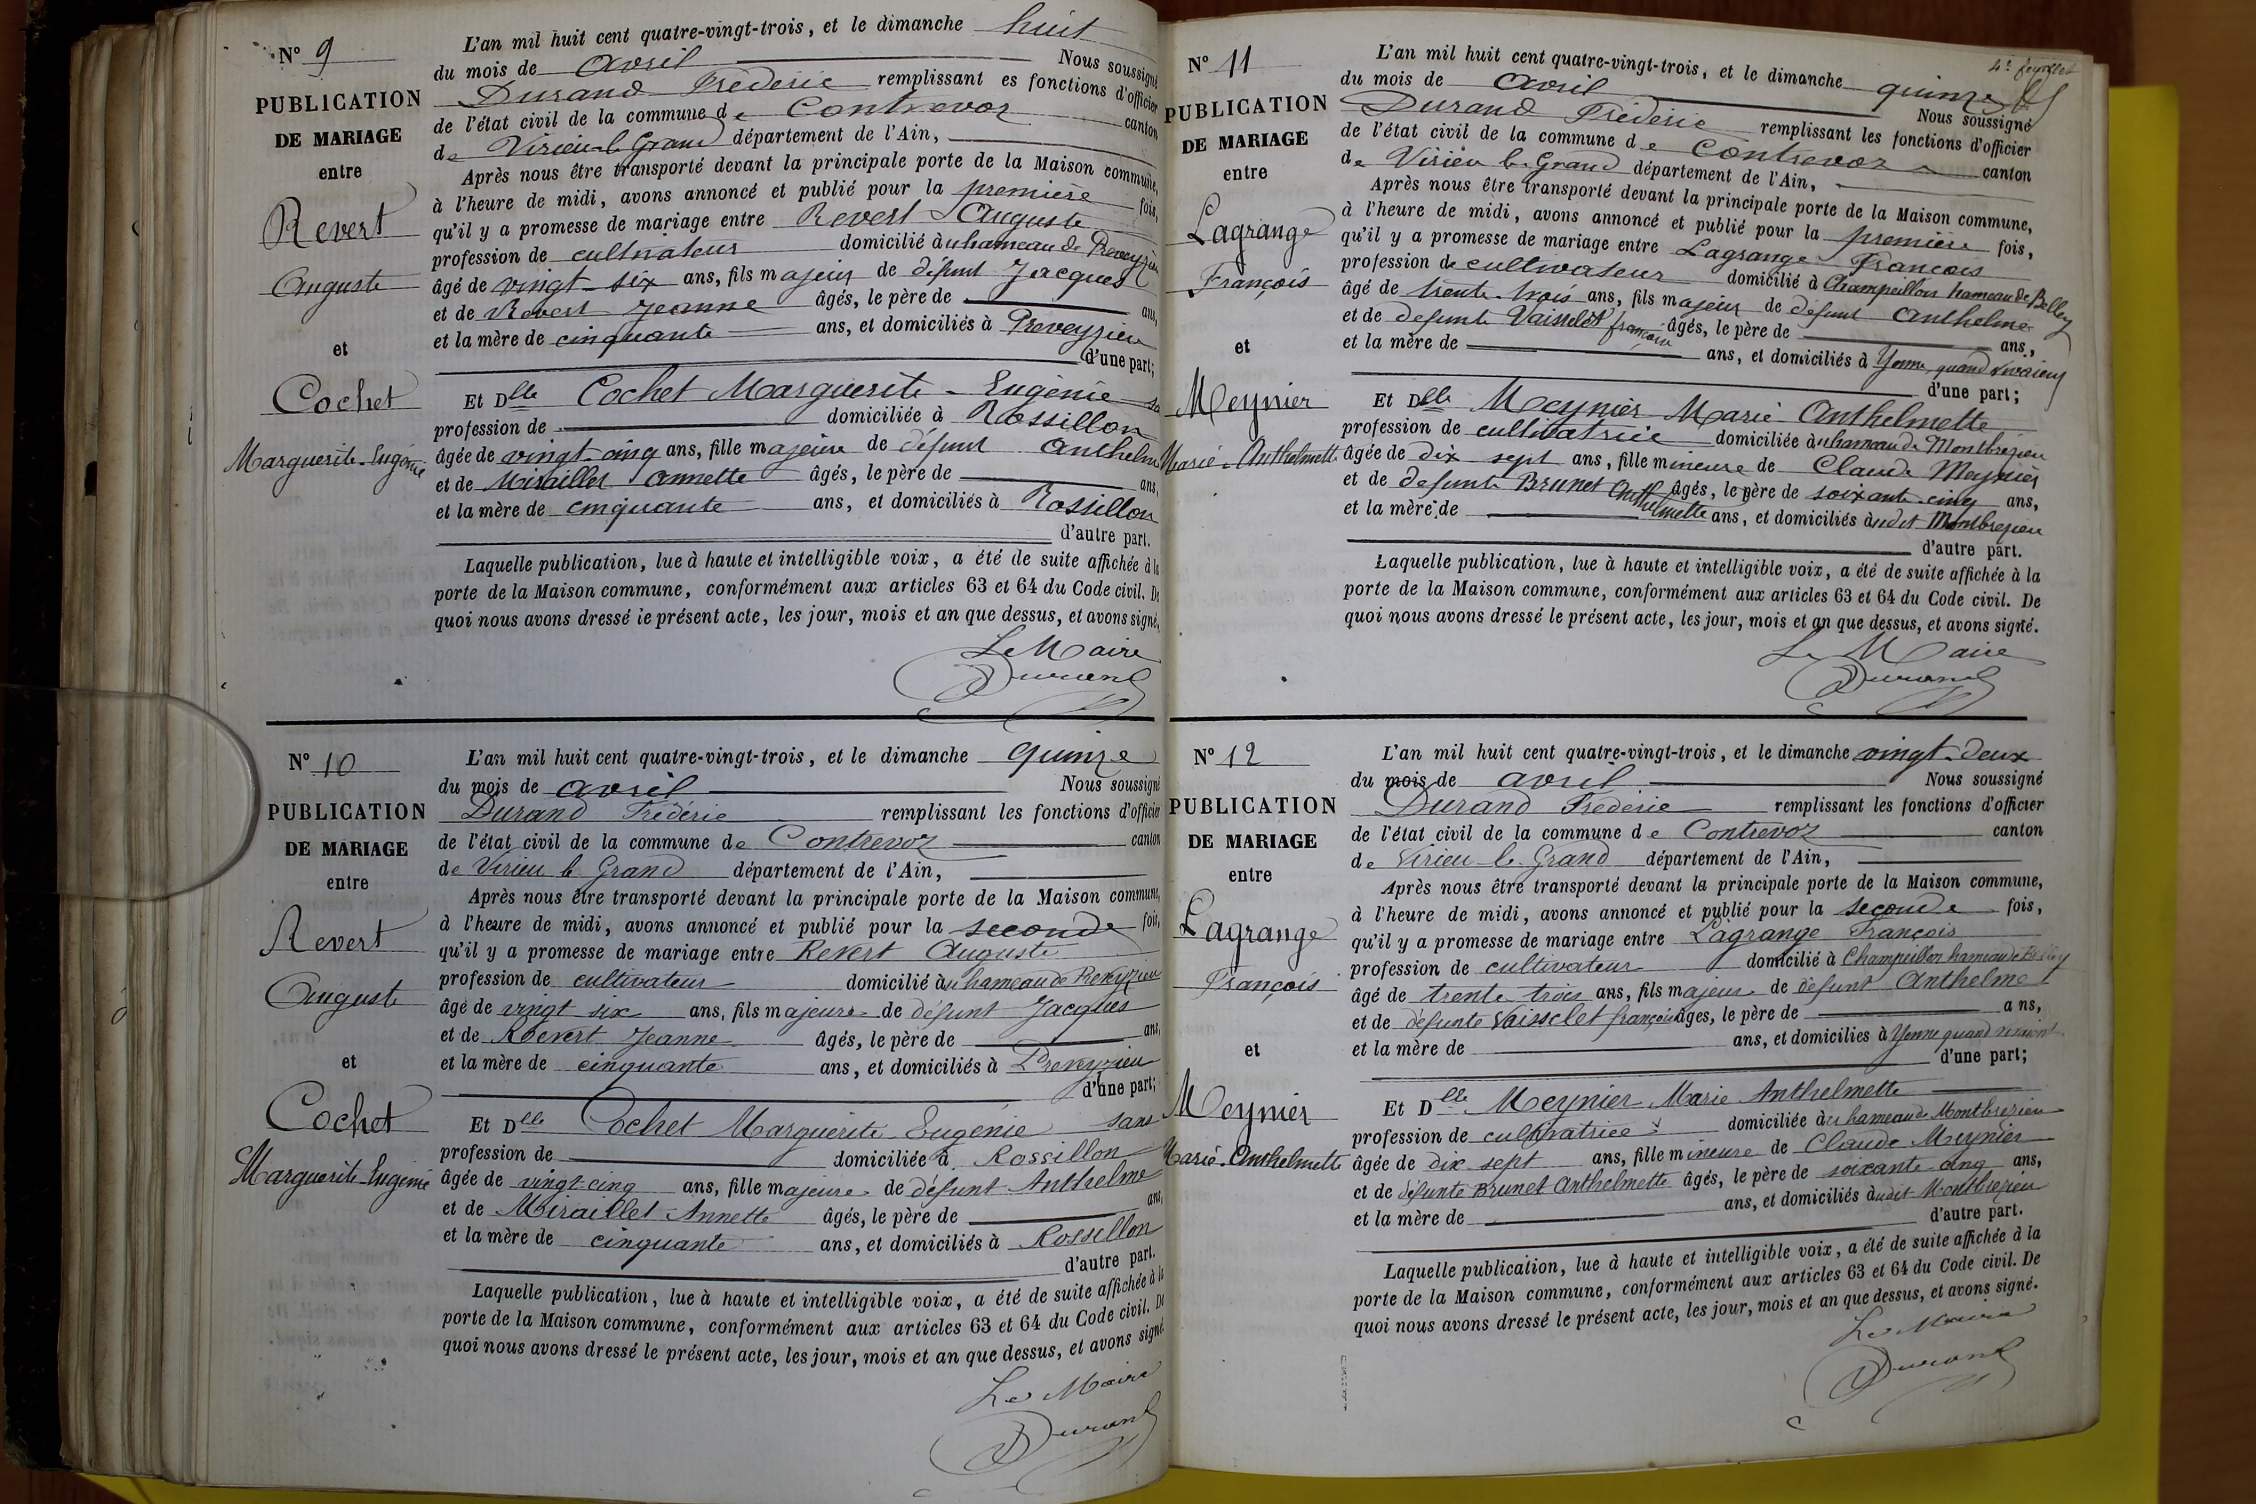 N° 9
PUBLICATION
DE MARIAGE
entre
Revert
Auguste
et
Cochet
Marguerite-Eugénie
L'an mil huit cent quatre-vingt-trois, et le dimanche huit
du mois de avril Nous soussigné
Durand Frédéric remplissant es fonctions d'officier
de l'état civil de la commune de Contrevoz canton
de Virieu-le-Grand département de l'Ain,
Après nous être transporté devant la principale porte de la Maison commune,
à l'heure de midi, avons annoncé et publié pour la première fois,
qu'il y a promesse de mariage entre Revert Auguste
profession de cultivateur domicilié à u hameau de Preveyzieu
âgé de vingt-six ans, fils majeur de défunt Jacques
et de Revert Jeanne âgés, le père de ans,
et la mère de cinquante ans, et domiciliés à Preveyzieu
d'une part;
Et Dlle Cochet Marguerite-Eugénie sa
profession de domiciliée à Rossillon
âgée de vingt-cinq ans, fille majeure de défunt Anthelme
et de Miraillet Annette âgés, le père de ans,
et la mère de cinquante ans, et domiciliés à Rossillon
d'autre part.
Laquelle publication, lue à haute et intelligible voix, a été de suite affichée à la
porte de la Maison commune, conformément aux articles 63 et 64 du Code civil. De
quoi nous avons dressé le présent acte, les jour, mois et an que dessus, et avons signé.
Le Maire
Durand
N° 10
PUBLICATION
DE MARIAGE
entre
Revert
Auguste
et
Cochet
Marguerite-Eugénie
L'an mil huit cent quatre-vingt-trois, et le dimanche quinze
du mois de avril Nous soussigné
Durand Frédéric remplissant les fonctions d'officier
de l'état civil de la commune de Contrevoz canton
de Virieu le Grand département de l'Ain,
Après nous être transporté devant la principale porte de la Maison commune,
à l'heure de midi, avons annoncé et publié pour la seconde fois,
qu'il y a promesse de mariage entre Revert Auguste
profession de cultivateur domicilié à u hameau de Preveyzieu
âgé de vingt six ans, fils majeur de défunt Jacques
et de Revert Jeanne âgés, le père de ans,
et la mère de cinquante ans, et domiciliés à Preveyzieu
d'une part;
Et Dlle Cochet Marguerite Eugénie sans
profession de domiciliée à Rossillon
âgée de vingt-cinq ans, fille majeure de défunt Anthelme
et de Miraillet Annette âgés, le père de ans,
et la mère de cinquante ans, et domiciliés à Rossillon
d'autre part.
Laquelle publication, lue à haute et intelligible voix, a été de suite affichée à la
porte de la Maison commune, conformément aux articles 63 et 64 du Code civil. De
quoi nous avons dressé le présent acte, les jour, mois et an que dessus, et avons signé.
Le Maire
Durand
4e feuillet
N° 11
PUBLICATION
DE MARIAGE
entre
Lagrange
François
et
Meynier
Marie-Anthelmette
L'an mil huit cent quatre-vingt-trois, et le dimanche quinze
du mois de avril Nous soussigné
Durand Frédéric remplissant les fonctions d'officier
de l'état civil de la commune de Contrevoz canton
de Virieu le Grand département de l'Ain,
Après nous être transporté devant la principale porte de la Maison commune,
à l'heure de midi, avons annoncé et publié pour la première fois,
qu'il y a promesse de mariage entre Lagrange François
profession de cultivateur domicilié à Champeillon hameau de Belley
âgé de trente-trois ans, fils majeur de défunt Anthelme
et de défunte Vaisselet françoise âgés, le père de ans,
et la mère de ans, et domiciliés à Yenne quand vivaient
d'une part;
Et Dlle Meynier Marie Anthelmette
profession de cultivatrice domiciliée à u hameau de Montbrezieu
âgée de dix sept ans, fille mineure de Claude Meynier
et de défunte Brunet Anthelmette âgés, le père de soixante-cinq ans,
et la mère de ans, et domiciliés à udit Montbrezieu
d'autre part.
Laquelle publication, lue à haute et intelligible voix, a été de suite affichée à la
porte de la Maison commune, conformément aux articles 63 et 64 du Code civil. De
quoi nous avons dressé le présent acte, les jour, mois et an que dessus, et avons signé.
Le Maire
Durand
N° 12
PUBLICATION
DE MARIAGE
entre
Lagrange
François
et
Meynier
Marie-Anthelmette
L'an mil huit cent quatre-vingt-trois, et le dimanche vingt-deux
du mois de avril Nous soussigné
Durand Frédéric remplissant les fonctions d'officier
de l'état civil de la commune de Contrevoz canton
de Virieu-le-Grand département de l'Ain,
Après nous être transporté devant la principale porte de la Maison commune,
à l'heure de midi, avons annoncé et publié pour la seconde fois,
qu'il y a promesse de mariage entre Lagrange François
profession de cultivateur domicilié à Champeillon hameau de Belley
âgé de trente-trois ans, fils majeur de défunt Anthelme
et de défunte Vaisselet françoise âgés, le père de ans,
et la mère de ans, et domiciliés à Yenne quand vivaient
d'une part;
Et Dlle Meynier Marie Anthelmette
profession de cultivatrice domiciliée à u hameau de Montbrezieu
âgée de dix sept ans, fille mineure de Claude Meynier
et de défunte Brunet Anthelmette âgés, le père de soixante-cinq ans,
et la mère de ans, et domiciliés à udit Montbrezieu
d'autre part.
Laquelle publication, lue à haute et intelligible voix, a été de suite affichée à la
porte de la Maison commune, conformément aux articles 63 et 64 du Code civil. De
quoi nous avons dressé le présent acte, les jour, mois et an que dessus, et avons signé.
Le Maire
Durand